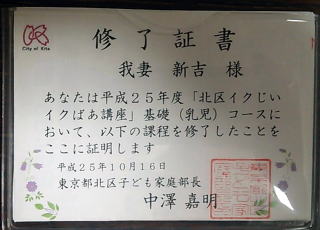 City of Kita
修了証書
我妻 新吉 様
あなたは平成25年度「北区イクじい
イクばあ講座」基礎(乳児)コースに
おいて、以下の課程を修了したことを
ここに証明します
平成25年10月16日
東京都北区子ども家庭部長
中澤 嘉明